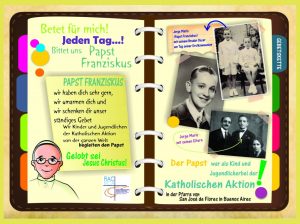 Betet für mich!
Jeden Tag...!
Bittet uns Papst
Franziskus
PAPST FRANZISKUS
wir haben dich sehr gern,
wir umarmen dich und
wir schenken dir unser
ständiges Gebet
Wir Kinder und Jugendlichen
der Katholischen Aktion
von der ganzen Welt
begleiten den Papst
Gelobt sei
Jesus Christus!
Jorge Mario
Papst Franziskus
mit seinem Bruder Oscar
am Tag seiner Erstkommunion
Jorge Mario
mit seinen Eltern
Der Papst war als Kind und
Jugendlicher bei der
Katholischen Aktion
in der Pfarre von
San José de Flores in Buenos Aires
GEBETSKETTE